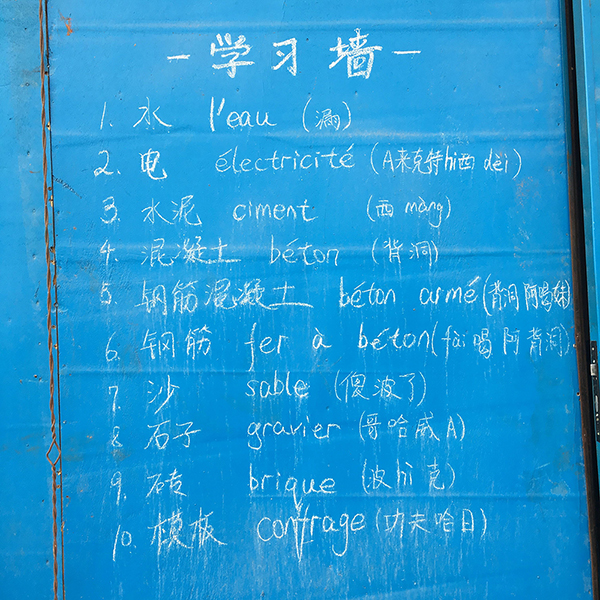 -学习墙-
1. 水 l'eau (漏)
2. 电 électricité (A来克特hi西 dèi)
3. 水泥 ciment (西 màng)
4. 混凝土 béton (背洞)
5. 钢筋混凝土 béton armé (背洞 阿喝妹)
6. 钢筋 fer à béton (fài 喝 阿 背洞)
7. 沙 sable (傻波了)
8. 石子 gravier (哥哈威A)
9. 砖 brique (波hì克)
10. 模板 coffrage (功夫哈日)